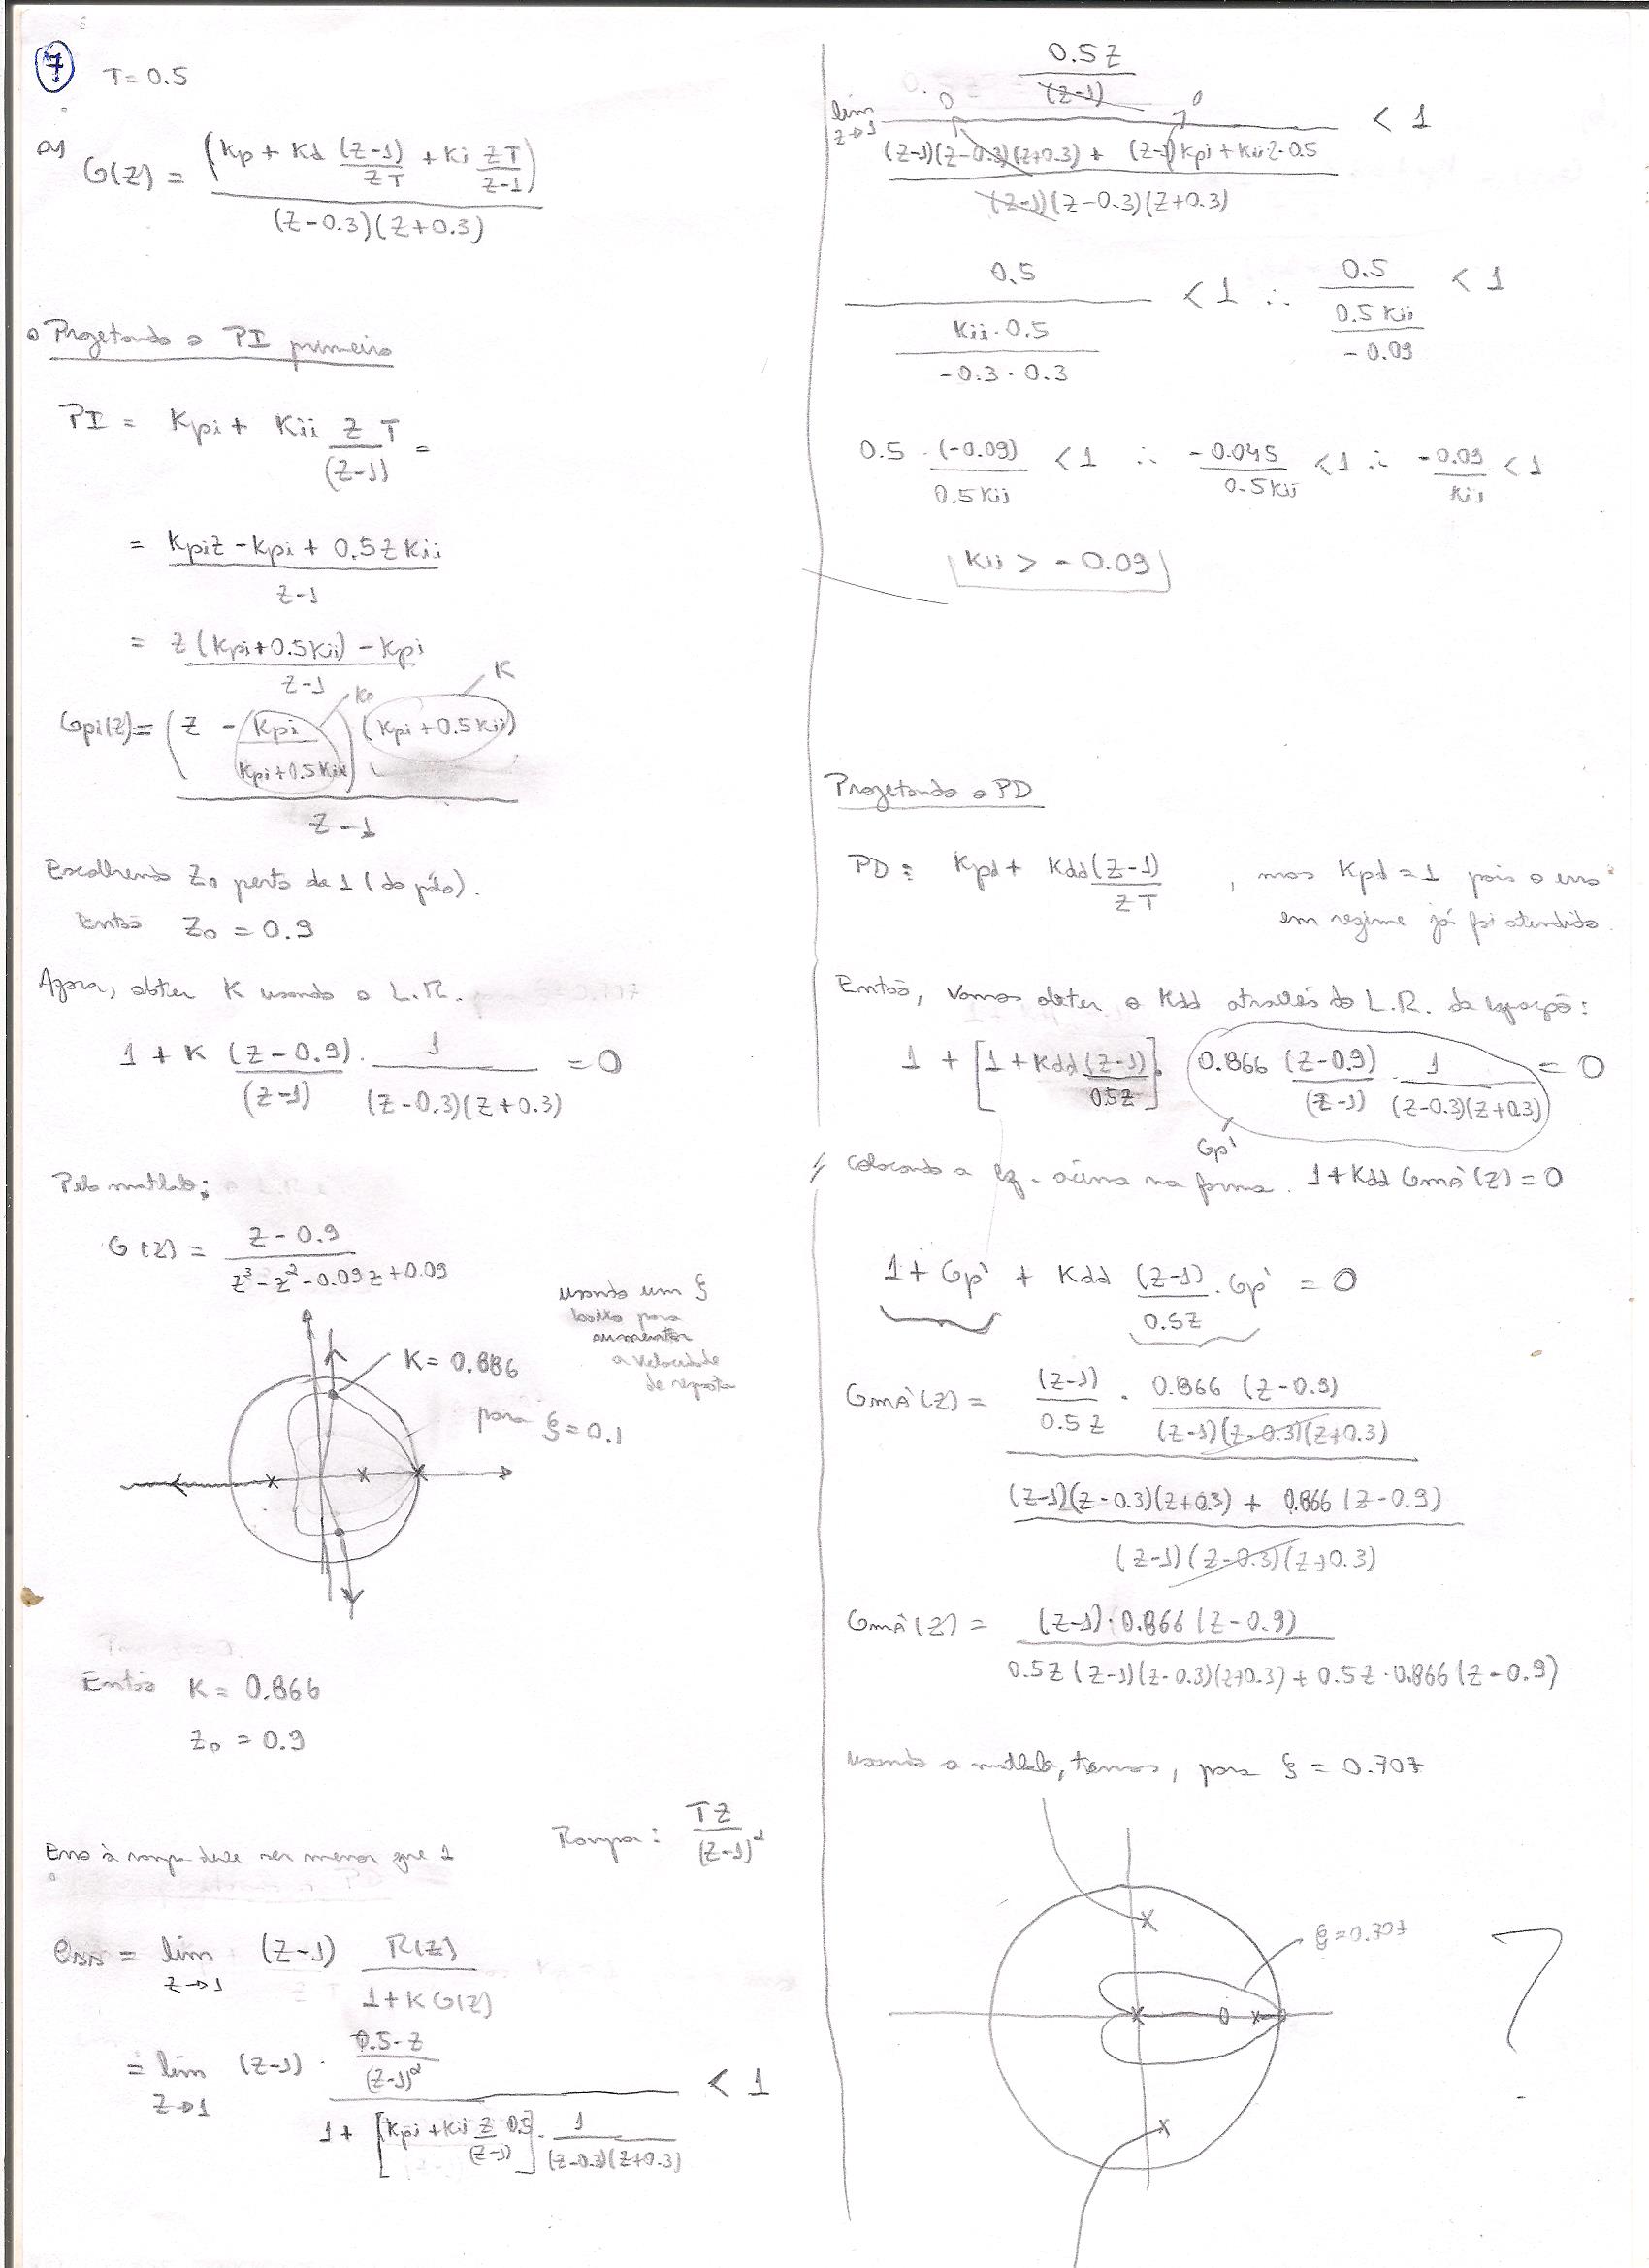 7 T = 0.5
a) G(z) = (Kp + Kd (z-1)/(zT) + Ki zT/(z-1)) / ((z-0.3)(z+0.3))
Projetando o PI primeiro
PI = Kpi + Kii z T/(z-1) =
= (Kpiz - Kpi + 0.5z Kii)/(z-1)
= (z(Kpi+0.5Kii) - Kpi)/(z-1)
K
Ko
Gpi(z) = (z - Kpi/(Kpi+0.5Kii)) (Kpi+0.5Kii) / (z-1)
Escolhendo Zo perto de 1 (do pólo).
Então Zo = 0.9
Agora, obter K usando o L.R.
1 + K (z-0.9)/(z-1) . 1/((z-0.3)(z+0.3)) = 0
Pelo matlab:
G(z) = (z-0.9)/(z³-z²-0.09z+0.09)
usando um ξ
baixo para
aumentar
a velocidade
de resposta
K = 0.886
para ξ=0.1
Então K = 0.866
Zo = 0.9
Erro à rampa deve ser menor que 1
Rampa: Tz/(z-1)²
ess = lim z→1 (z-1) R(z)/(1+KG(z))
= lim z→1 (z-1) . (0.5.z/(z-1)²) / (1 + [Kpi + Kii z 0.5/(z-1)] . 1/((z-0.3)(z+0.3))) < 1
lim z→1 (0.5z/(z-1)) / (((z-1)(z-0.3)(z+0.3) + (z-1)Kpi + Kii z.0.5) / ((z-1)(z-0.3)(z+0.3))) < 1
0 0
0.5/(Kii.0.5/(-0.3.0.3)) < 1 ∴ 0.5/(0.5Kii/-0.09) < 1
0.5 . (-0.09)/(0.5Kii) < 1 ∴ -0.045/(0.5Kii) < 1 ∴ -0.09/Kii < 1
Kii > -0.09
Projetando o PD
PD = Kpd + Kdd(z-1)/(zT) , mas Kpd = 1 pois o erro
em regime já foi atendido.
Então, vamos obter o Kdd através do L.R. da equação:
1 + [1 + Kdd (z-1)/(0.5z)] . 0.866 (z-0.9)/(z-1) . 1/((z-0.3)(z+0.3)) = 0
Gpi
Colocando a eq. acima na forma 1+Kdd GmA'(z) = 0
1+Gpi + Kdd (z-1)/(0.5z) . Gpi = 0
GmA'(z) = ((z-1)/(0.5z) . 0.866(z-0.9)/((z-1)(z-0.3)(z+0.3))) / (((z-1)(z-0.3)(z+0.3) + 0.866(z-0.9))/((z-1)(z-0.3)(z+0.3)))
GmA'(z) = ((z-1).0.866(z-0.9)) / (0.5z(z-1)(z-0.3)(z+0.3) + 0.5z.0.866(z-0.9))
Usando o matlab, temos, para ξ = 0.707
ξ=0.707
?